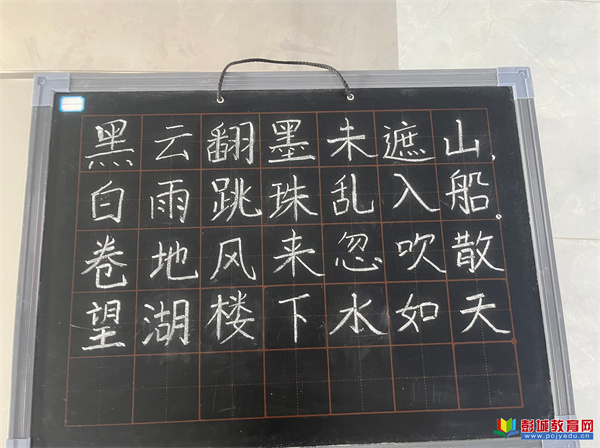 黑云翻墨未遮山,
白雨跳珠乱入船。
卷地风来忽吹散
望湖楼下水如天
彭城教育网
www.pcjyedu.cn